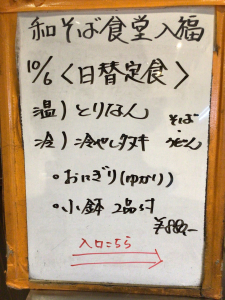 和そば食堂入福
10/6〈日替定食〉
温）とりなん そば
冷）冷やしタヌキ うどん
・おにぎり(ゆかり)
・小鉢 2品付
¥880-
入口こちら